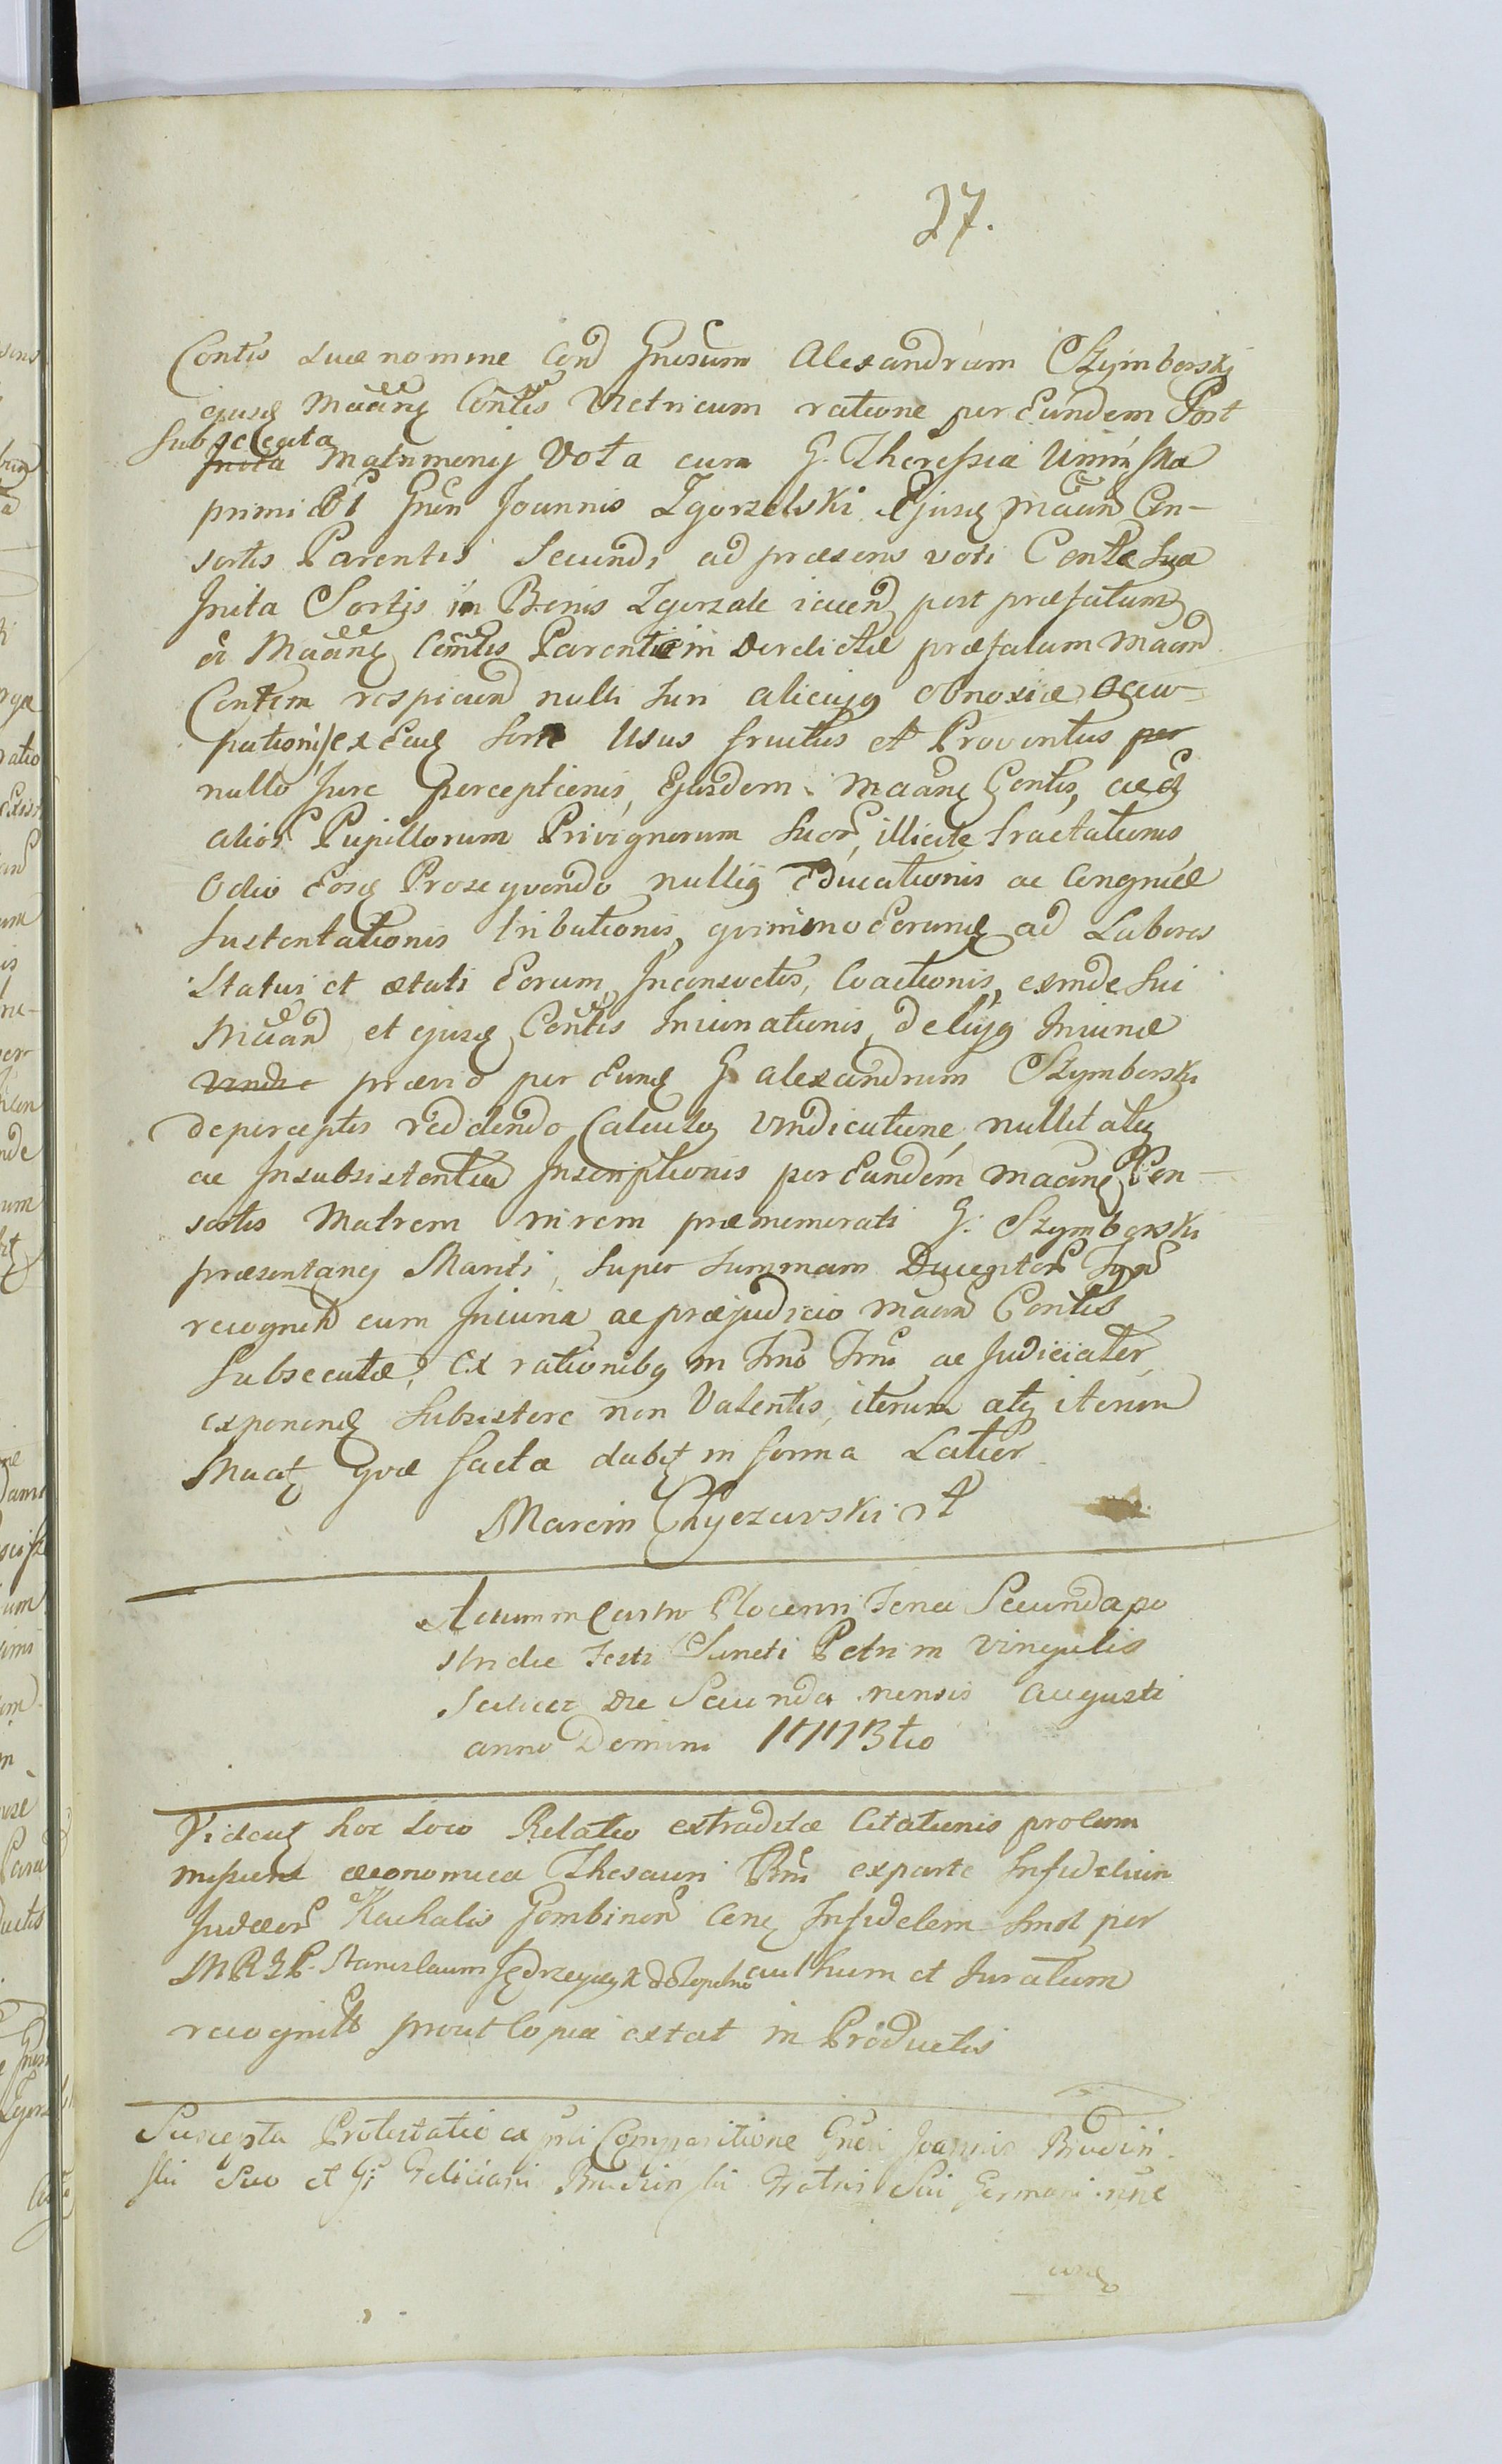 27.
Contis suæ nomine Cond Gnosum Alexandrum Szymborski
ejusq Maanq Contis Vitricum ratione per Eundem Post
subsecuta
Inita Matrimonij Vota cum G. Theressia
primi Voti Gnen Joannis Zgorzelski Ejusq Maand Con-
sortis Parentis Secundi ad præsens voti Conte Sua
Inita Sortis in Bonis Zgorzale iacen post præfatum
et Maanq Contis Parentem Derelictæ præfatum Maand
Contem respicien nulli Iuri alicujq obnoxiæ Occu-
pationis, ex Eaq Sorte Usus fructus et Proventus per
nullo Jure perceptionis, Ejusdem Maanq Contis, ac
alior Pupillorum Privignorum Suor, illicite Tractationis
Odio Eosq Prosequendo nullijq Educationis ac Congruæ
Sustentationis tributionis, quinimo Eorumq ad Labores
Statui et ætati Eorum Inconsuetos, Coactionis, exinde Sui
Maand et ejusq Contis Iniuriationis, de Iniuriæ
vindic prævio per Eunq G Alexandrum Szymborski
de perceptis reddendo Calculo, vindicatione, nullitateq
ac Insubsistentia Inscriptionis per Eandem Maanq Con-
sortis Matrem rerem præmemorati G: Szymborski
præsentanej Mariti, super Summam Ducentor
recognit cum Iniuria ac præjudicio Maand Contis
Subsecutæ, Ex rationibq in Tmo Trni ac Judicialer
exponenq Subsistere non Valentis, iterum atq iterum
Maatq quæ facta dabit in forma Latior
Marcin
Actum in Castro Plocensi Feria Secunda po
stridie Festi Sancti Petri in Vinculis
Scilicet Die Secunda mensis Augusti
anno Domini 1773tio
Videatq hoc Loco Relatio extraditæ Citationis pro Com
missione æconomica Thesauri Rni ex parte Infidelium
Judæor Kachalis Gombinen Conq Infidelem Smol per
MRGP. Stanislaum Jędrzejczyk authum et Iuratum
recognit prout Copia extat in Productis
Suscepta Protestatio ex pnli Comparitione Gnesi Joannis Brudzin-
ski Suo et Gi Feliciani Brudzinski Fratris Sui Germani nne